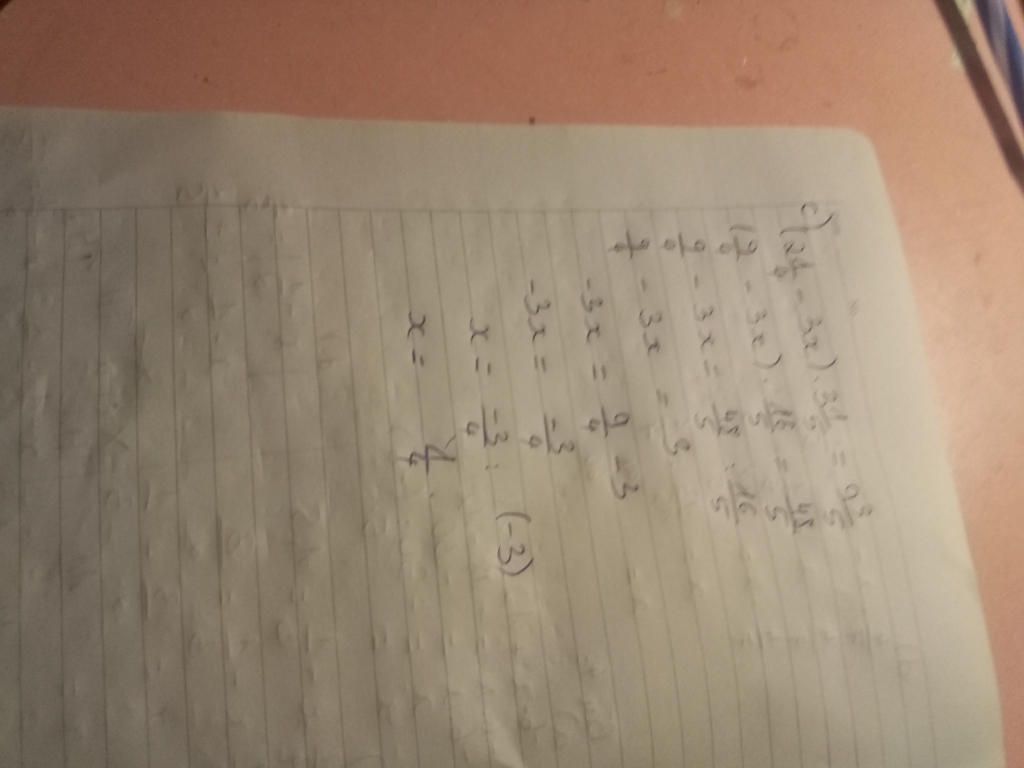 c) (2 1/4 - 3x) . 3 1/5 = 9 3/5
(9/4 - 3x) . 16/5 = 48/5
9/4 - 3x = 48/5 : 16/5
9/4 - 3x = 3
-3x = 9/4 - 3
-3x = -3/4
x = -3/4 : (-3)
x = 1/4